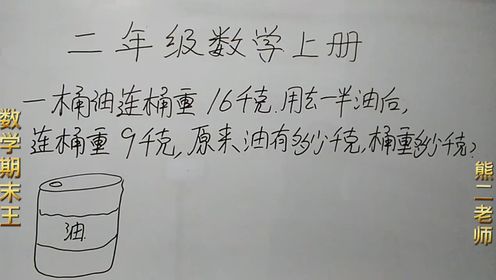 二年级数学上册
一桶油连桶重16千克.用去一半油后,
连桶重9千克,原来油有多少千克,桶重多少千克?
油
数学期末王
熊二老师